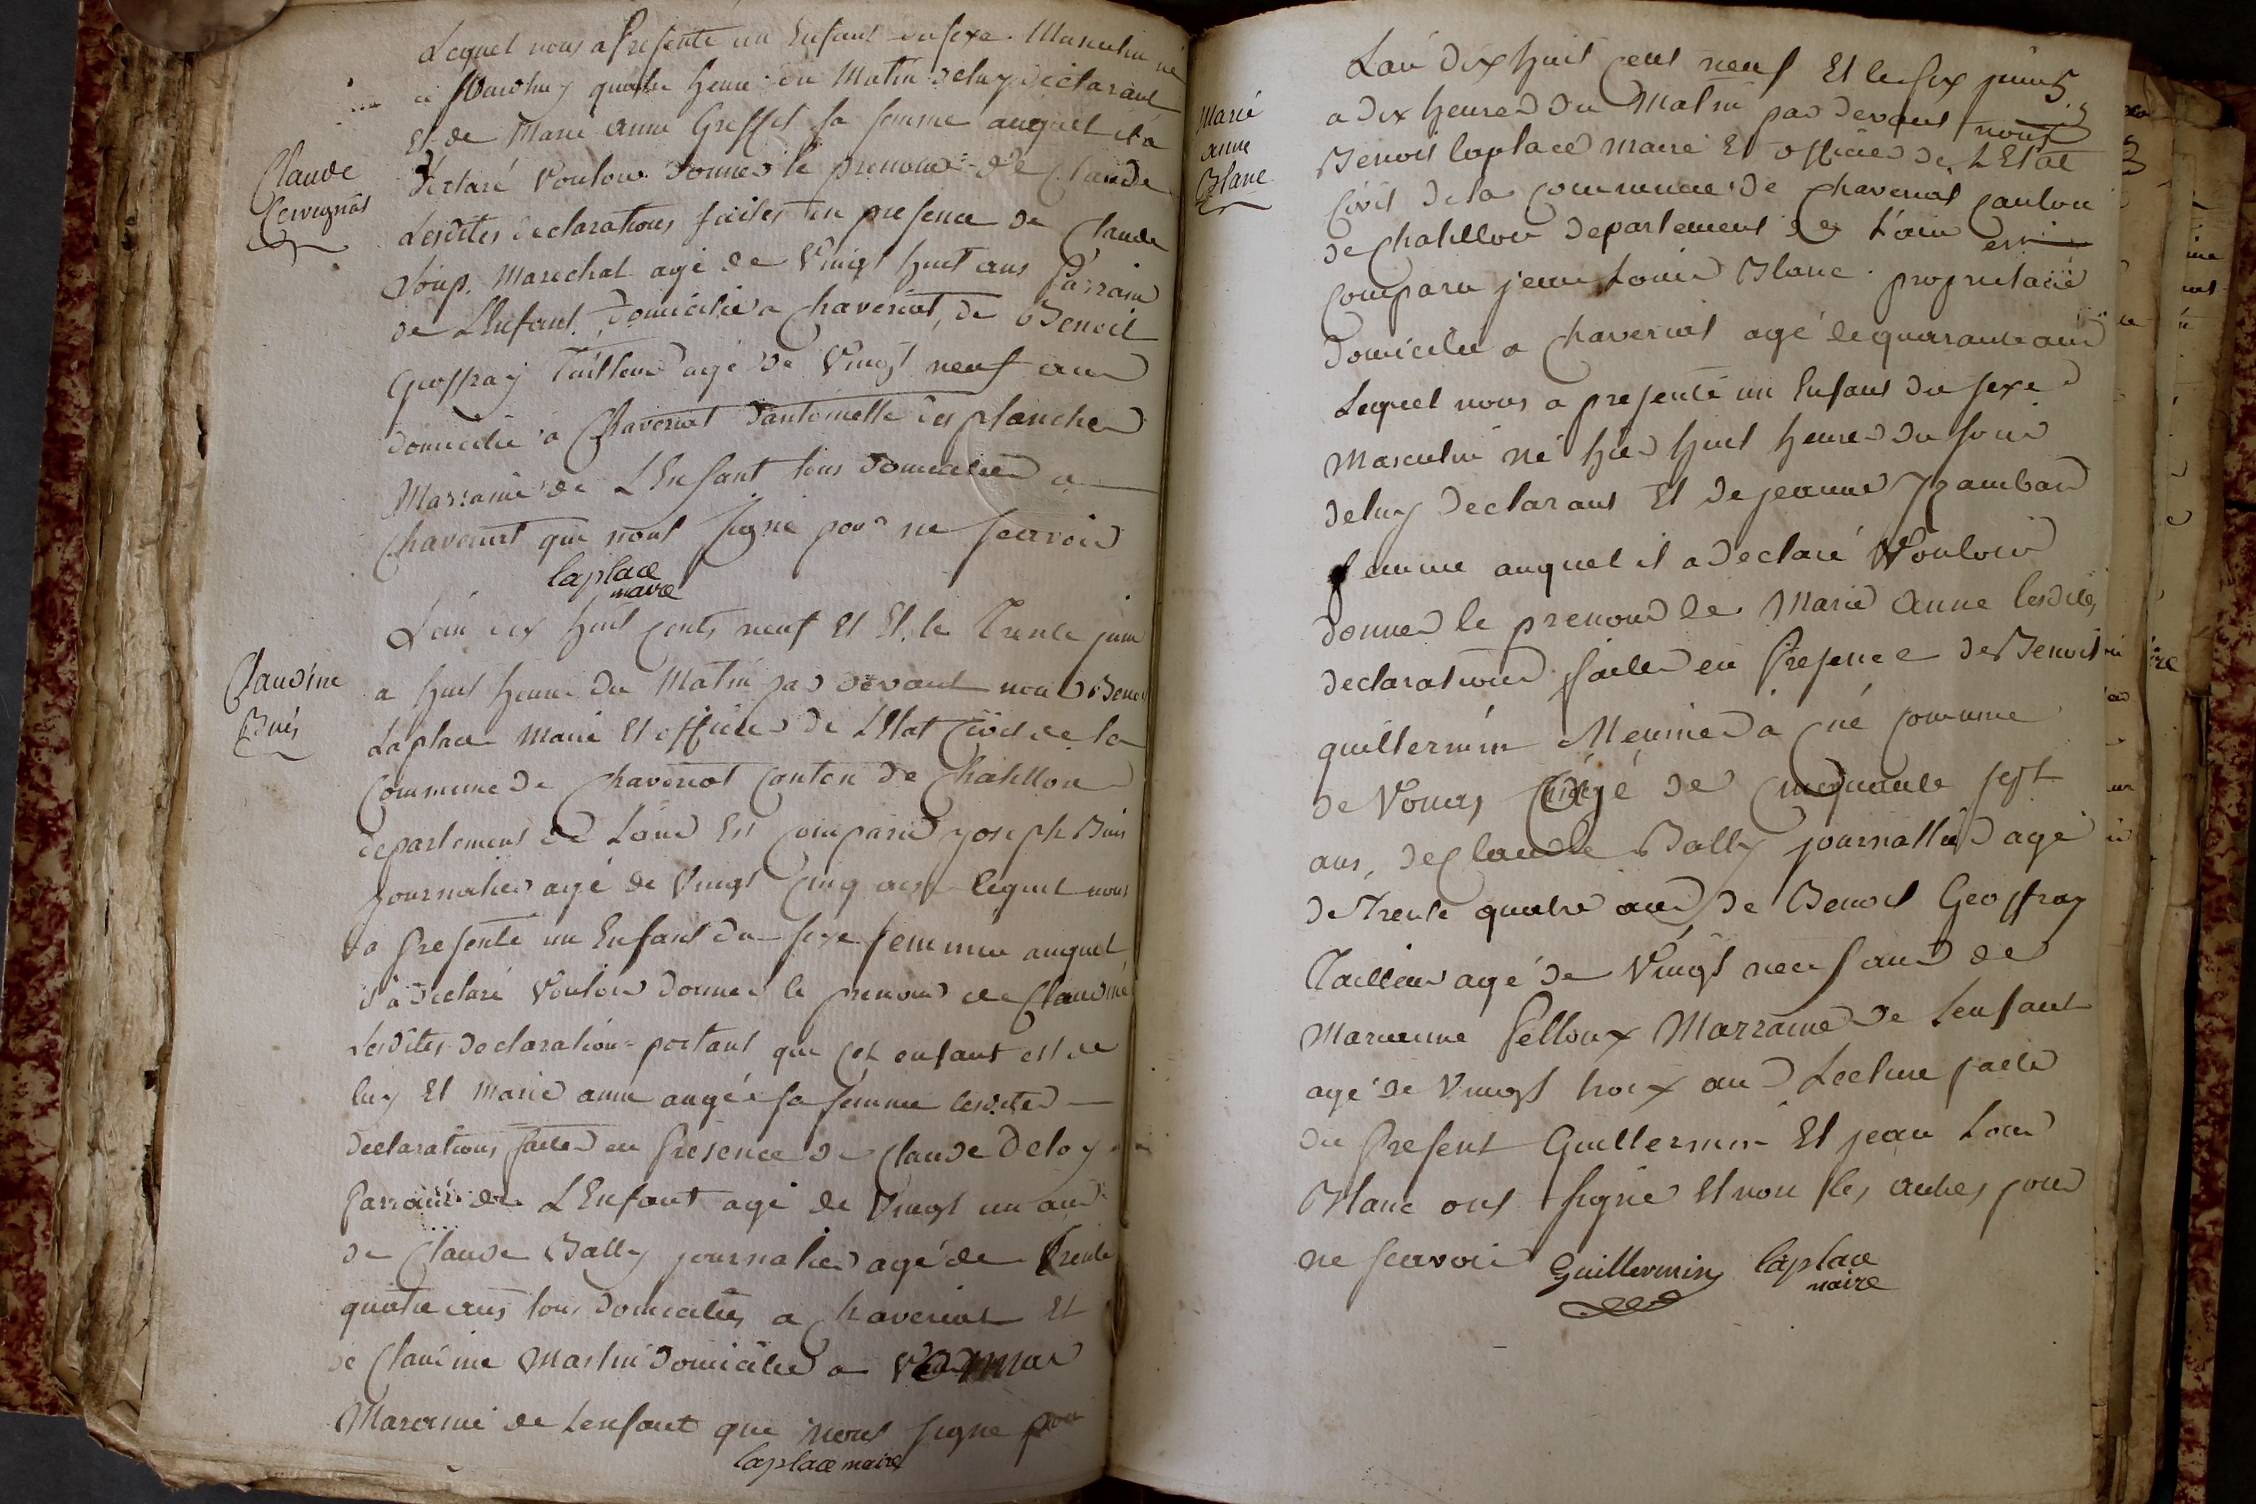 Lequel nous a presenté un Enfant du sexe Masculin né
quatre heure du Matin de luy declarant
Et de Marie anne Greffet sa femme auquel il a
Claude
Cervignat
déclaré Vouloir donner le prenom de Claude
Lesdites declarations faites en presence de Claude
Marechal agé de Vingt huit ans Parrain
de LEnfant domicilié a Chaveriat, de Benoit
Geoffray Tailleur agé de Vingt neuf ans
domicilié a Chaveriat dantoinette des planches
Marraine de LEnfant tous domiciliés a
Chaveriat que nont signe pour ne scavoir
laplace
maire
Lan dix huit cents neuf Et Et le Trente juin
Claudine
Buis
a huit heure du Matin par devant nous Benoit
Laplace Maire Et officier de LEtat Civil de la
Commune de Chaveriat Canton de Chatillon
departement de Lain Est Comparu joseph Buis
journalier agé de Vingt Cinq ans lequel nous
a presenté un Enfant du sexe feminin auquel
il a declaré Vouloir donner le prenom de Claudine
Lesdites declaration portant que cet enfant est de
luy Et Marie anne augé sa femme lesdites
declarations faites en presence de Claude Deloy
Parrain de LEnfant agé de Vingt un ans
de Claude Bally journalier agé de Trente
quatre ans tous domicilies a Chaveriat Et
de Claudine Martin domiciliee a Vonnas
Maraine de Lenfant que nont signe pour
laplace maire
Lan dix huit cent neuf Et le six juin
Marie
anne
Blanc
a dix heures du Matin par devant nous
Benoit laplace maire Et officier de LEtat
Civil de la Commune de Chaveriat canton
de Chatillon departement de Lain est
Comparu jean Louis Blanc proprietaire
domicilié a Chaveriat agé de quarante ans
Lequel nous a presenté un Enfant du sexe
Masculin né hier huit heures du soir
de luy declarant Et de jeanne
femme auquel il a declaré Vouloir
donner le prenom de Marie anne lesdites
declarations faites en Presence de Benoit
guillermin Meunier a né commune
de Vonnas agé de Cinquante sept
ans, de Claude Bally journallier agé
de Trente quatre ans de Benoit Geoffray
Tailleur agé de Vingt neuf ans de
Marianne Pelloux Marraine de Lenfant
agé de Vingt troix ans Lecture faite
du Present Guillermin Et jean Louis
Blanc ont signé Et non les autres pour
ne scavoir Guillermin laplace
maire